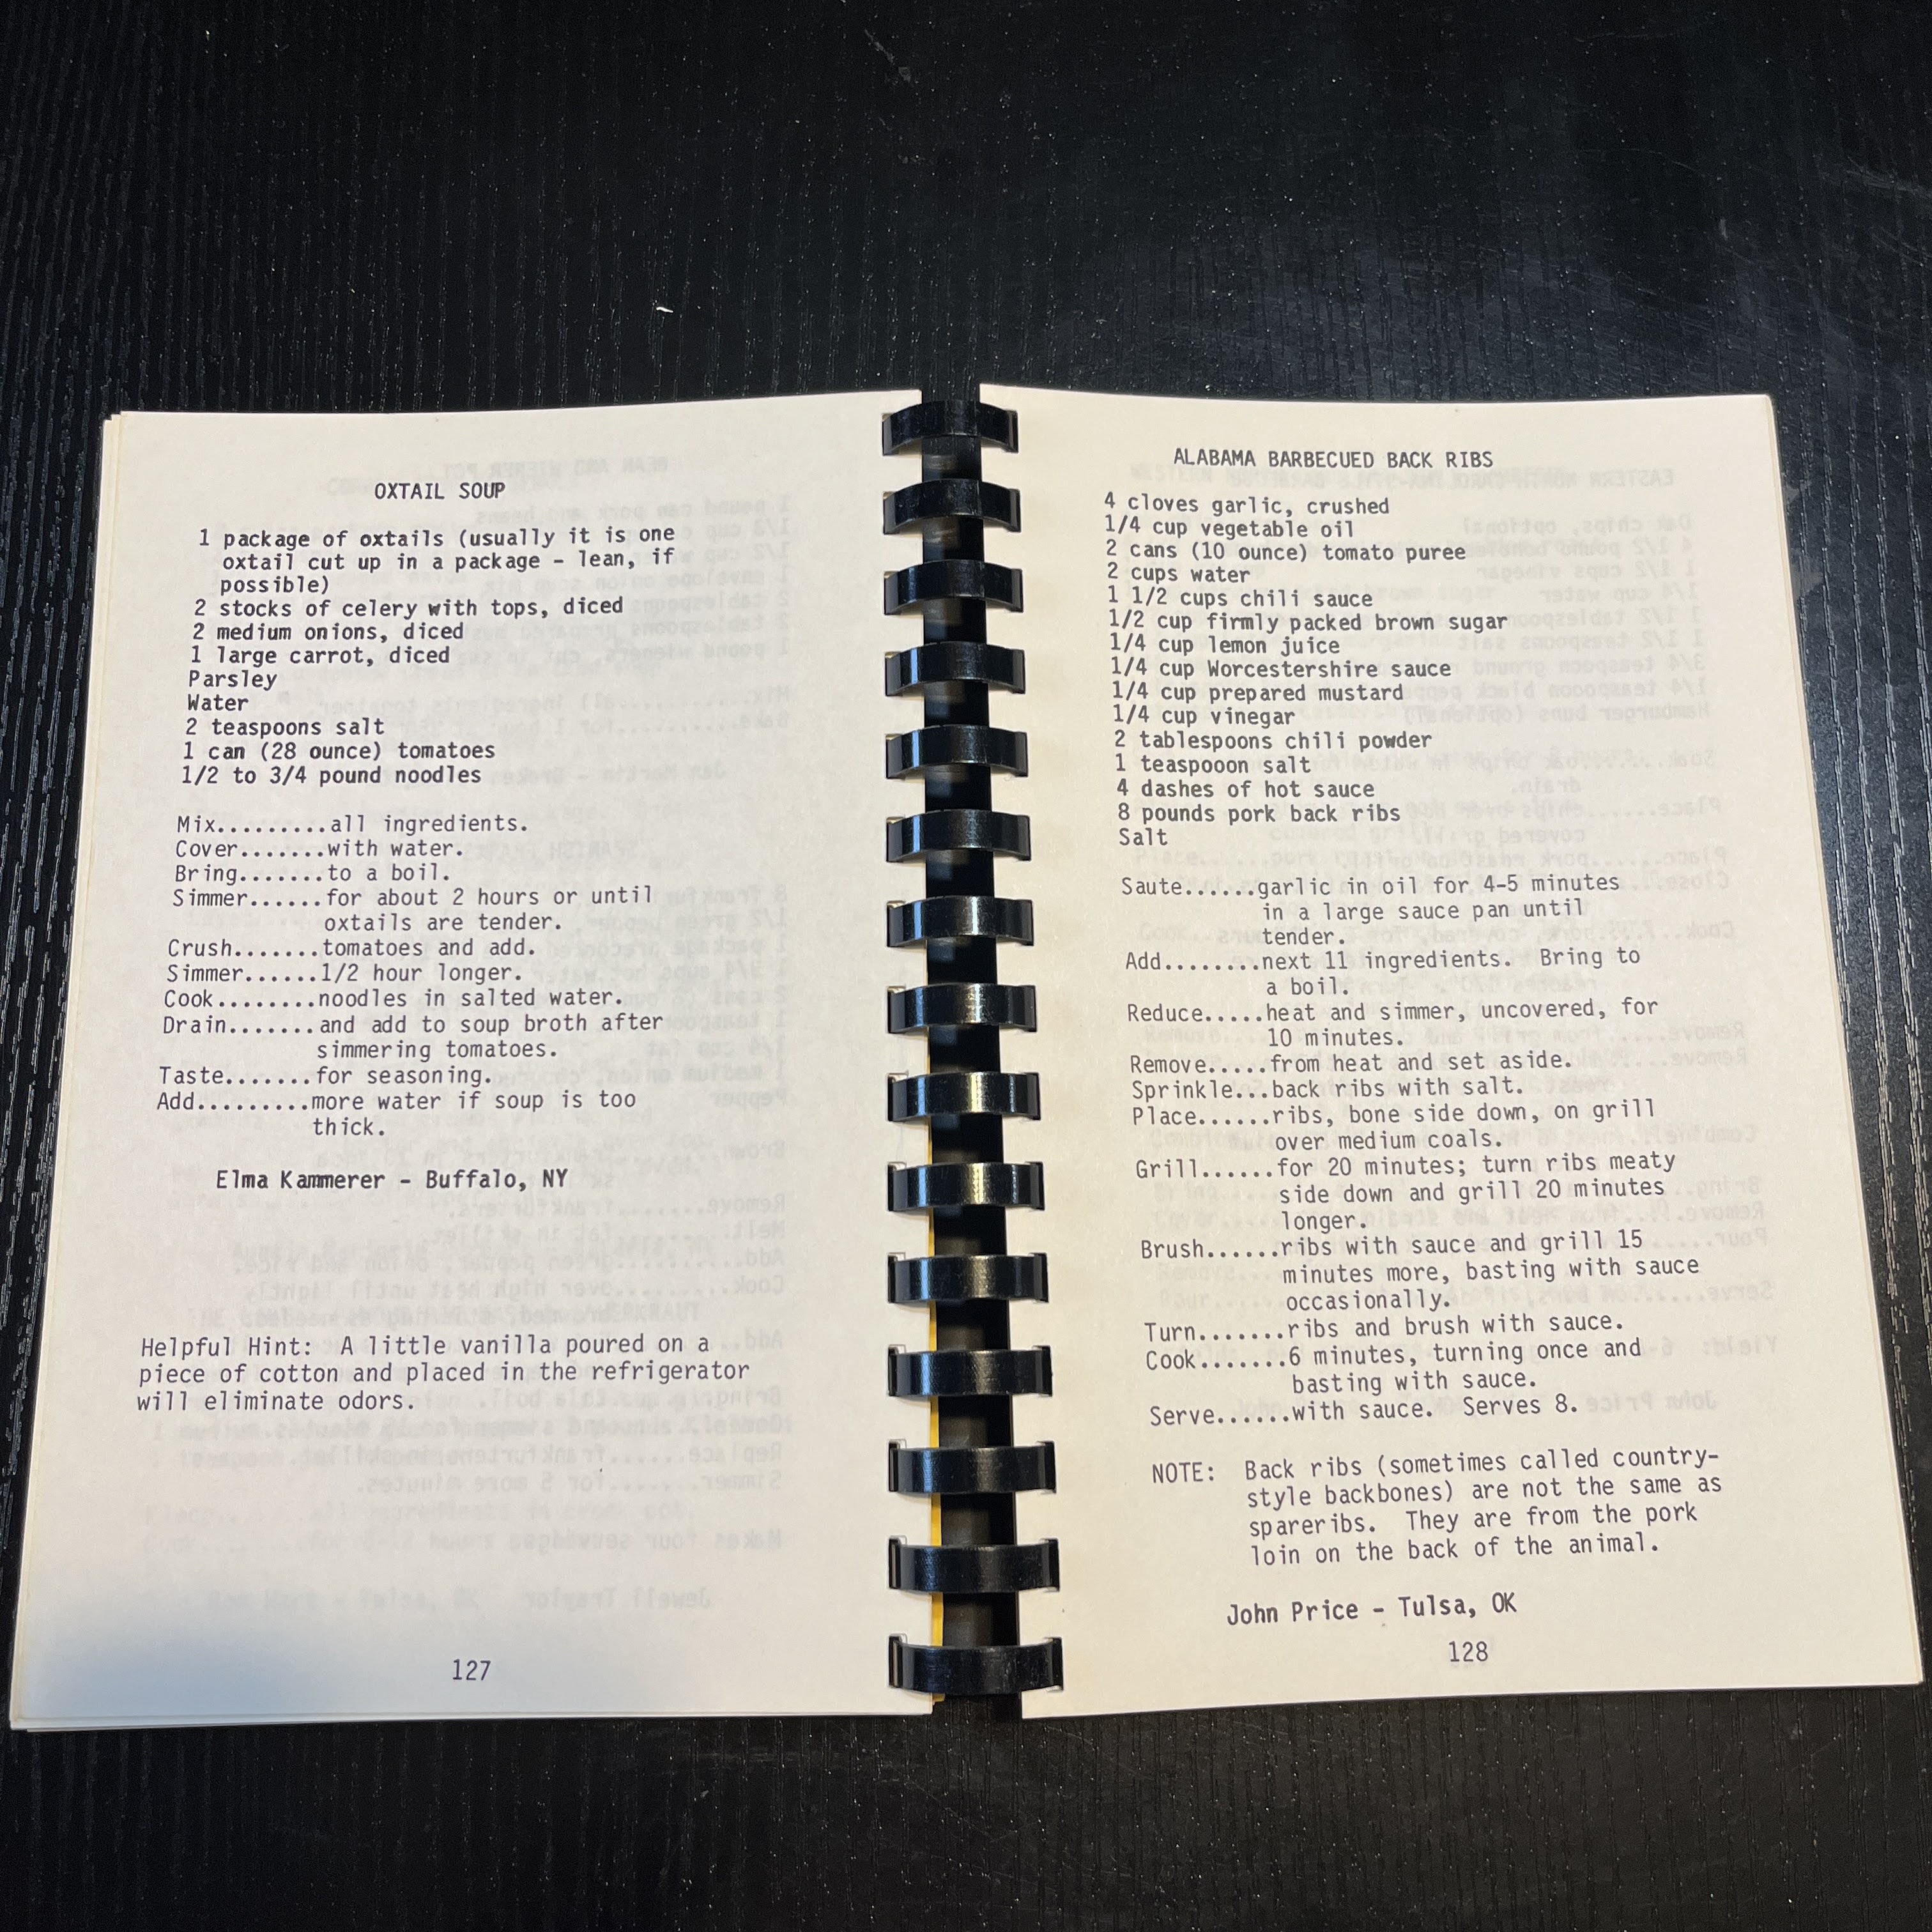 OXTAIL SOUP
1 package of oxtails (usually it is one
oxtail cut up in a package - lean, if
possible)
2 stocks of celery with tops, diced
2 medium onions, diced
1 large carrot, diced
Parsley
Water
2 teaspoons salt
1 can (28 ounce) tomatoes
1/2 to 3/4 pound noodles
Mix.........all ingredients.
Cover.......with water.
Bring.......to a boil.
Simmer......for about 2 hours or until
oxtails are tender.
Crush.......tomatoes and add.
Simmer......1/2 hour longer.
Cook........noodles in salted water.
Drain.......and add to soup broth after
simmering tomatoes.
Taste.......for seasoning.
Add.........more water if soup is too
thick.
Elma Kammerer - Buffalo, NY
Helpful Hint: A little vanilla poured on a
piece of cotton and placed in the refrigerator
will eliminate odors.
127
ALABAMA BARBECUED BACK RIBS
4 cloves garlic, crushed
1/4 cup vegetable oil
2 cans (10 ounce) tomato puree
2 cups water
1 1/2 cups chili sauce
1/2 cup firmly packed brown sugar
1/4 cup lemon juice
1/4 cup Worcestershire sauce
1/4 cup prepared mustard
1/4 cup vinegar
2 tablespoons chili powder
1 teaspooon salt
4 dashes of hot sauce
8 pounds pork back ribs
Salt
Saute......garlic in oil for 4-5 minutes
in a large sauce pan until
tender.
Add........next 11 ingredients. Bring to
a boil.
Reduce.....heat and simmer, uncovered, for
10 minutes.
Remove.....from heat and set aside.
Sprinkle...back ribs with salt.
Place......ribs, bone side down, on grill
over medium coals.
Grill......for 20 minutes; turn ribs meaty
side down and grill 20 minutes
longer.
Brush......ribs with sauce and grill 15
minutes more, basting with sauce
occasionally.
Turn.......ribs and brush with sauce.
Cook.......6 minutes, turning once and
basting with sauce.
Serve......with sauce. Serves 8.
NOTE: Back ribs (sometimes called country-
style backbones) are not the same as
spareribs. They are from the pork
loin on the back of the animal.
John Price - Tulsa, OK
128